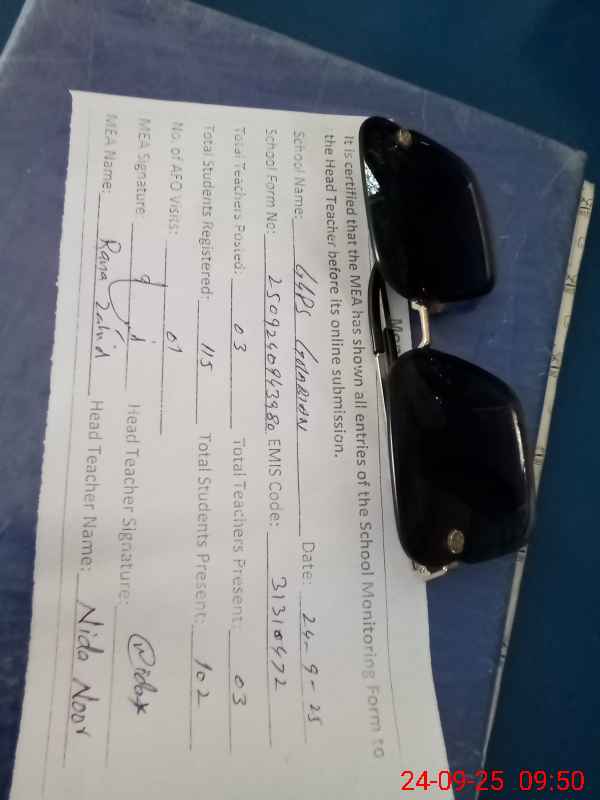 Mo
It is certified that the MEA has shown all entries of the School Monitoring Form to
the Head Teacher before its online submission.
School Name: GGPS Date: 24-9-25
School Form No: 2509240943980 EMIS Code: 31310472
Total Teachers Posted: 03 Total Teachers Present: 03
Total Students Registered: 115 Total Students Present: 102
No. of AEO Visits: 01
MEA Signature: Head Teacher Signature: Nida
MEA Name: Rana Zahid Head Teacher Name: Nida Noor
24-09-25 09:50